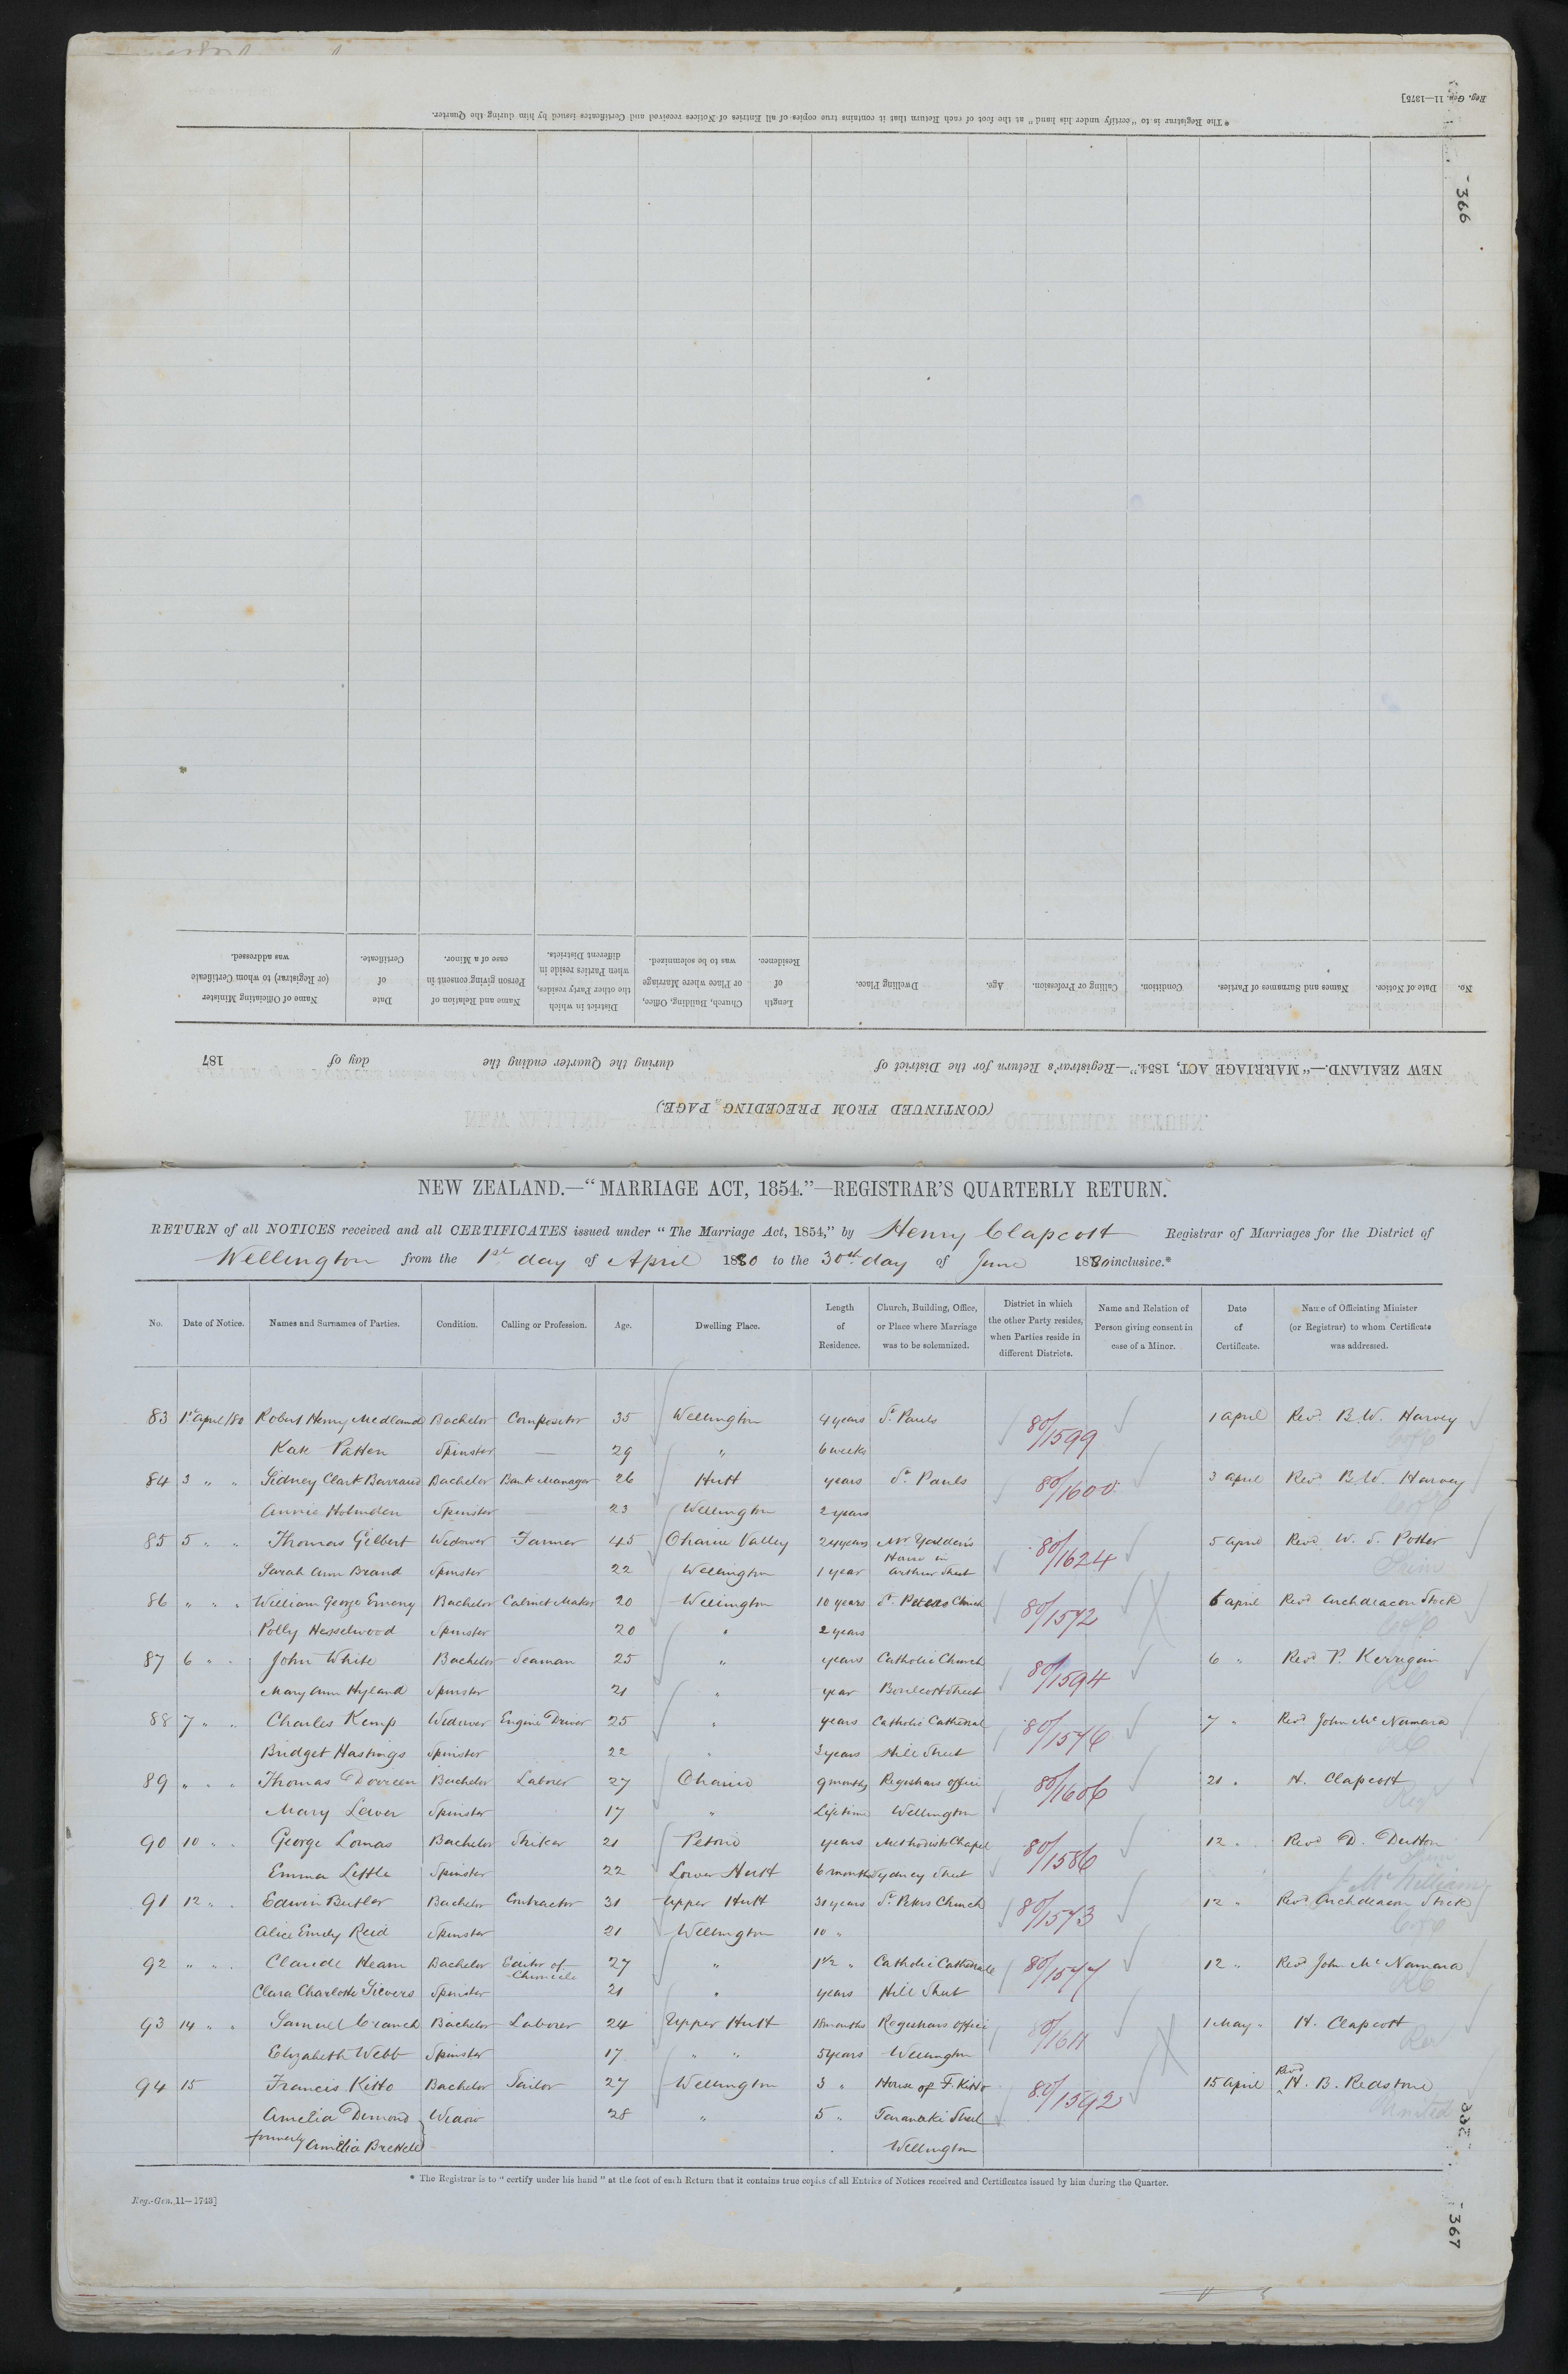 Reg. Gen. 11—1375]
* The Registrar is to "certify under his hand" at the foot of each Return that it contains true copies of all Entries of Notices received and Certificates issued by him during the Quarter.
366
No. Date of Notice. Names and Surnames of Parties. Condition. Calling or Profession. Age. Dwelling Place. Length of Residence. Church, Building, Office, or Place where Marriage was to be solemnized. District in which the other Party resides, when Parties reside in different Districts. Name and Relation of Person giving consent in case of a Minor. Date of Certificate. Name of Officiating Minister (or Registrar) to whom Certificate was addressed.
NEW ZEALAND.—"MARRIAGE ACT, 1854."—Registrar's Return for the District of during the Quarter ending the day of 187
(CONTINUED FROM PRECEDING PAGE.)
NEW ZEALAND.—"MARRIAGE ACT, 1854."—REGISTRAR'S QUARTERLY RETURN.
RETURN of all NOTICES received and all CERTIFICATES issued under "The Marriage Act, 1854," by Henry Clapcott Registrar of Marriages for the District of
Wellington from the 1st day of April 1880 to the 30th day of June 1880 inclusive.*
No. Date of Notice. Names and Surnames of Parties. Condition. Calling or Profession. Age. Dwelling Place. Length of Residence. Church, Building, Office, or Place where Marriage was to be solemnized. District in which the other Party resides, when Parties reside in different Districts. Name and Relation of Person giving consent in case of a Minor. Date of Certificate. Name of Officiating Minister (or Registrar) to whom Certificate was addressed.
83 1st April/80 Robert Henry Medland Bachelor Compositor 35 Wellington 4 years St Pauls 80/1599 1 April Revd B. W. Harvey
Kate Patten Spinster — 29 " 6 weeks
84 3 " " Sidney Clark Barraud Bachelor Bank Manager 26 Hutt years St Pauls 80/1600 3 April Revd B. W. Harvey
Annie Holmden Spinster 23 Wellington 2 years
85 5 " " Thomas Gilbert Widower Farmer 45 Ohariu Valley 24 years Mr Youlden's 80/1624 5 April Revd W. S. Potter
Sarah Ann Brand Spinster 22 Wellington 1 year House in Arthur Street Prim
86 " " " William George Emeny Bachelor Cabinet Maker 20 Wellington 10 years St Peters Church 80/1572 6 April Revd Archdeacon Stock
Polly Hesselwood Spinster 20 " 2 years
87 6 " " John White Bachelor Seaman 25 " years Catholic Church 80/1594 6 " Revd P. Kerrigan
Mary Ann Hyland Spinster 21 " year Boulcott Street RC
88 7 " " Charles Kemp Widower Engine Driver 25 " years Catholic Cathedral 80/1576 7 " Revd John McNamara
Bridget Hastings Spinster 22 " 3 years Hill Street RC
89 " " " Thomas Dooreen Bachelor Laborer 27 Ohariu 9 months Registrars office 80/1606 21 " H. Clapcott
Mary Lever Spinster 17 " Lifetime Wellington Reg
90 10 " " George Lomas Bachelor Striker 21 Petone years Methodists Chapel 80/1586 12 " Revd D. Dutton
Emma Little Spinster 22 Lower Hutt 6 months Sydney Street Prim
J. McWilliam
91 12 " " Edwin Butler Bachelor Contractor 31 Upper Hutt 31 years St Peters Church 80/1573 12 " Revd Archdeacon Stock
Alice Emily Reid Spinster 21 Wellington 10 "
92 " " " Claude Heam Bachelor Editor of Chronicle 27 " 1 1/2 " Catholic Cathedrale 80/1577 12 " Revd John McNamara
Clara Charlotte Sievers Spinster 21 " years Hill Street RC
93 14 " " Samuel Cranch Bachelor Laborer 24 Upper Hutt 18 months Registrars office 80/1611 1 May " H. Clapcott
Elizabeth Webb Spinster 17 " " 5 years Wellington Reg
94 15 Francis Kitto Bachelor Tailor 27 Wellington 3 " House of F. Kitto 80/1592 15 April Revd H. B. Redstone
Amelia Dimond Widow 28 " 5 " Taranaki Street United
formerly Amelia Brettell Wellington
* The Registrar is to "certify under his hand" at the foot of each Return that it contains true copies of all Entries of Notices received and Certificates issued by him during the Quarter.
Reg.-Gen. 11—1743]
367